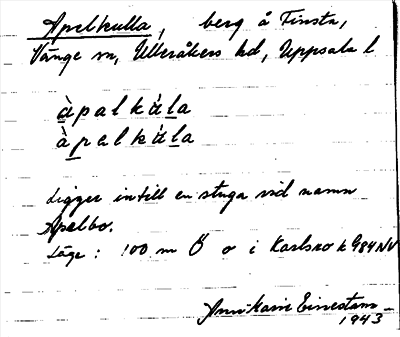 Apelkulla, berg å Finsta,
Vänge sn, Ulleråkers hd, Uppsala l
àpalkùla
àpelkùla
Ligger intill en stuga vid namn
Apelbo.
Läge: 100 m Ö o i Karlsro k 984 NV
Ann-Marie Einestam
1943